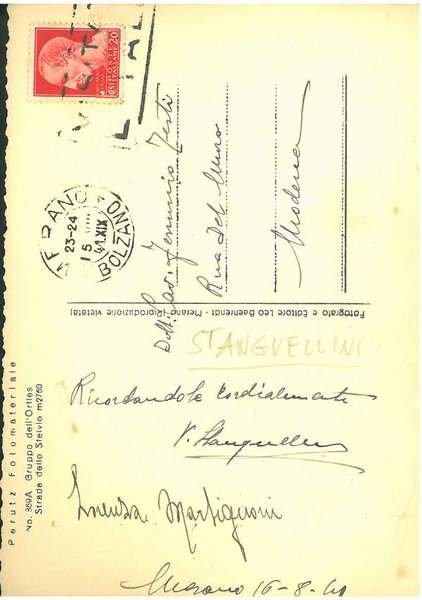 POSTE ITALIANE
20
MERANO
BOLZANO
23-24
15
XIX
Dott. Cav.
Testi
Rua Del Muro
Modena
Fotografo e Editore Leo Baehrendt - Merano (Riproduzione vietata)
STANGUELLINI
Ricordandola cordialmente
V. Stanguellini
Lorenza Martignoni
Merano 16-8-41
Perutz Fotomateriale
No. 369A Gruppo dell'Ortles
Strada dello Stelvio m2760